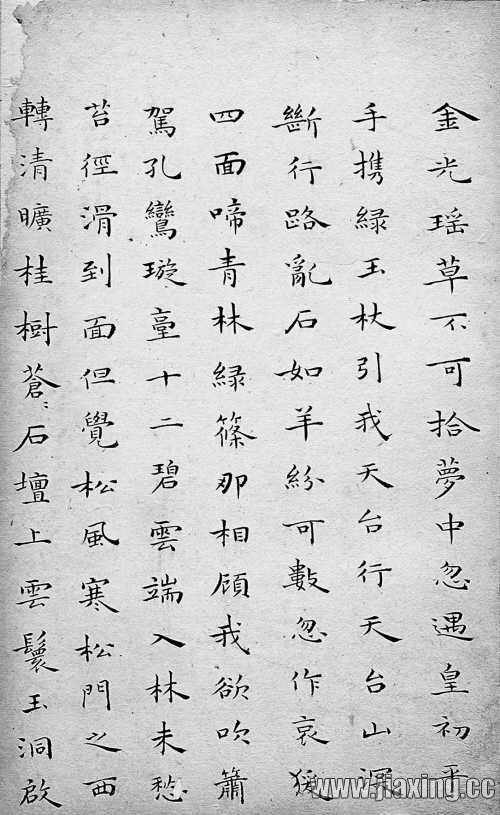 金光瑶草不可拾夢中忽遇皇初平
手携緑玉杖引我天台行天台山深
斷行路亂石如羊紛可數忽作哀猨
四面啼青林緑篠那相顧我欲吹簫
駕孔鸞璇臺十二碧雲端入林未愁
苔徑滑到面但覺松風寒松門之西
轉清曠桂樹蒼〻石壇上雲鬟玉洞啟
www.jiaxing.cc